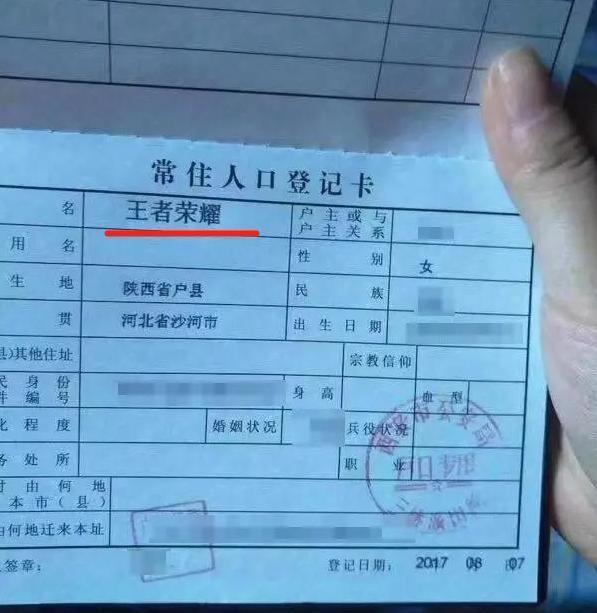 常住人口登记卡
名 王者荣耀 户主或与户主关系
用名 性别 女
生地 陕西省户县 民族
贯 河北省沙河市 出生日期
县)其他住址 宗教信仰
民身份件编号 身高 血型
化程度 婚姻状况 兵役状况
务处所 职业
时由何地本市(县)
由何地迁来本址
签章: 登记日期: 2017 年 08 月 07
西安市公安局
户口专用